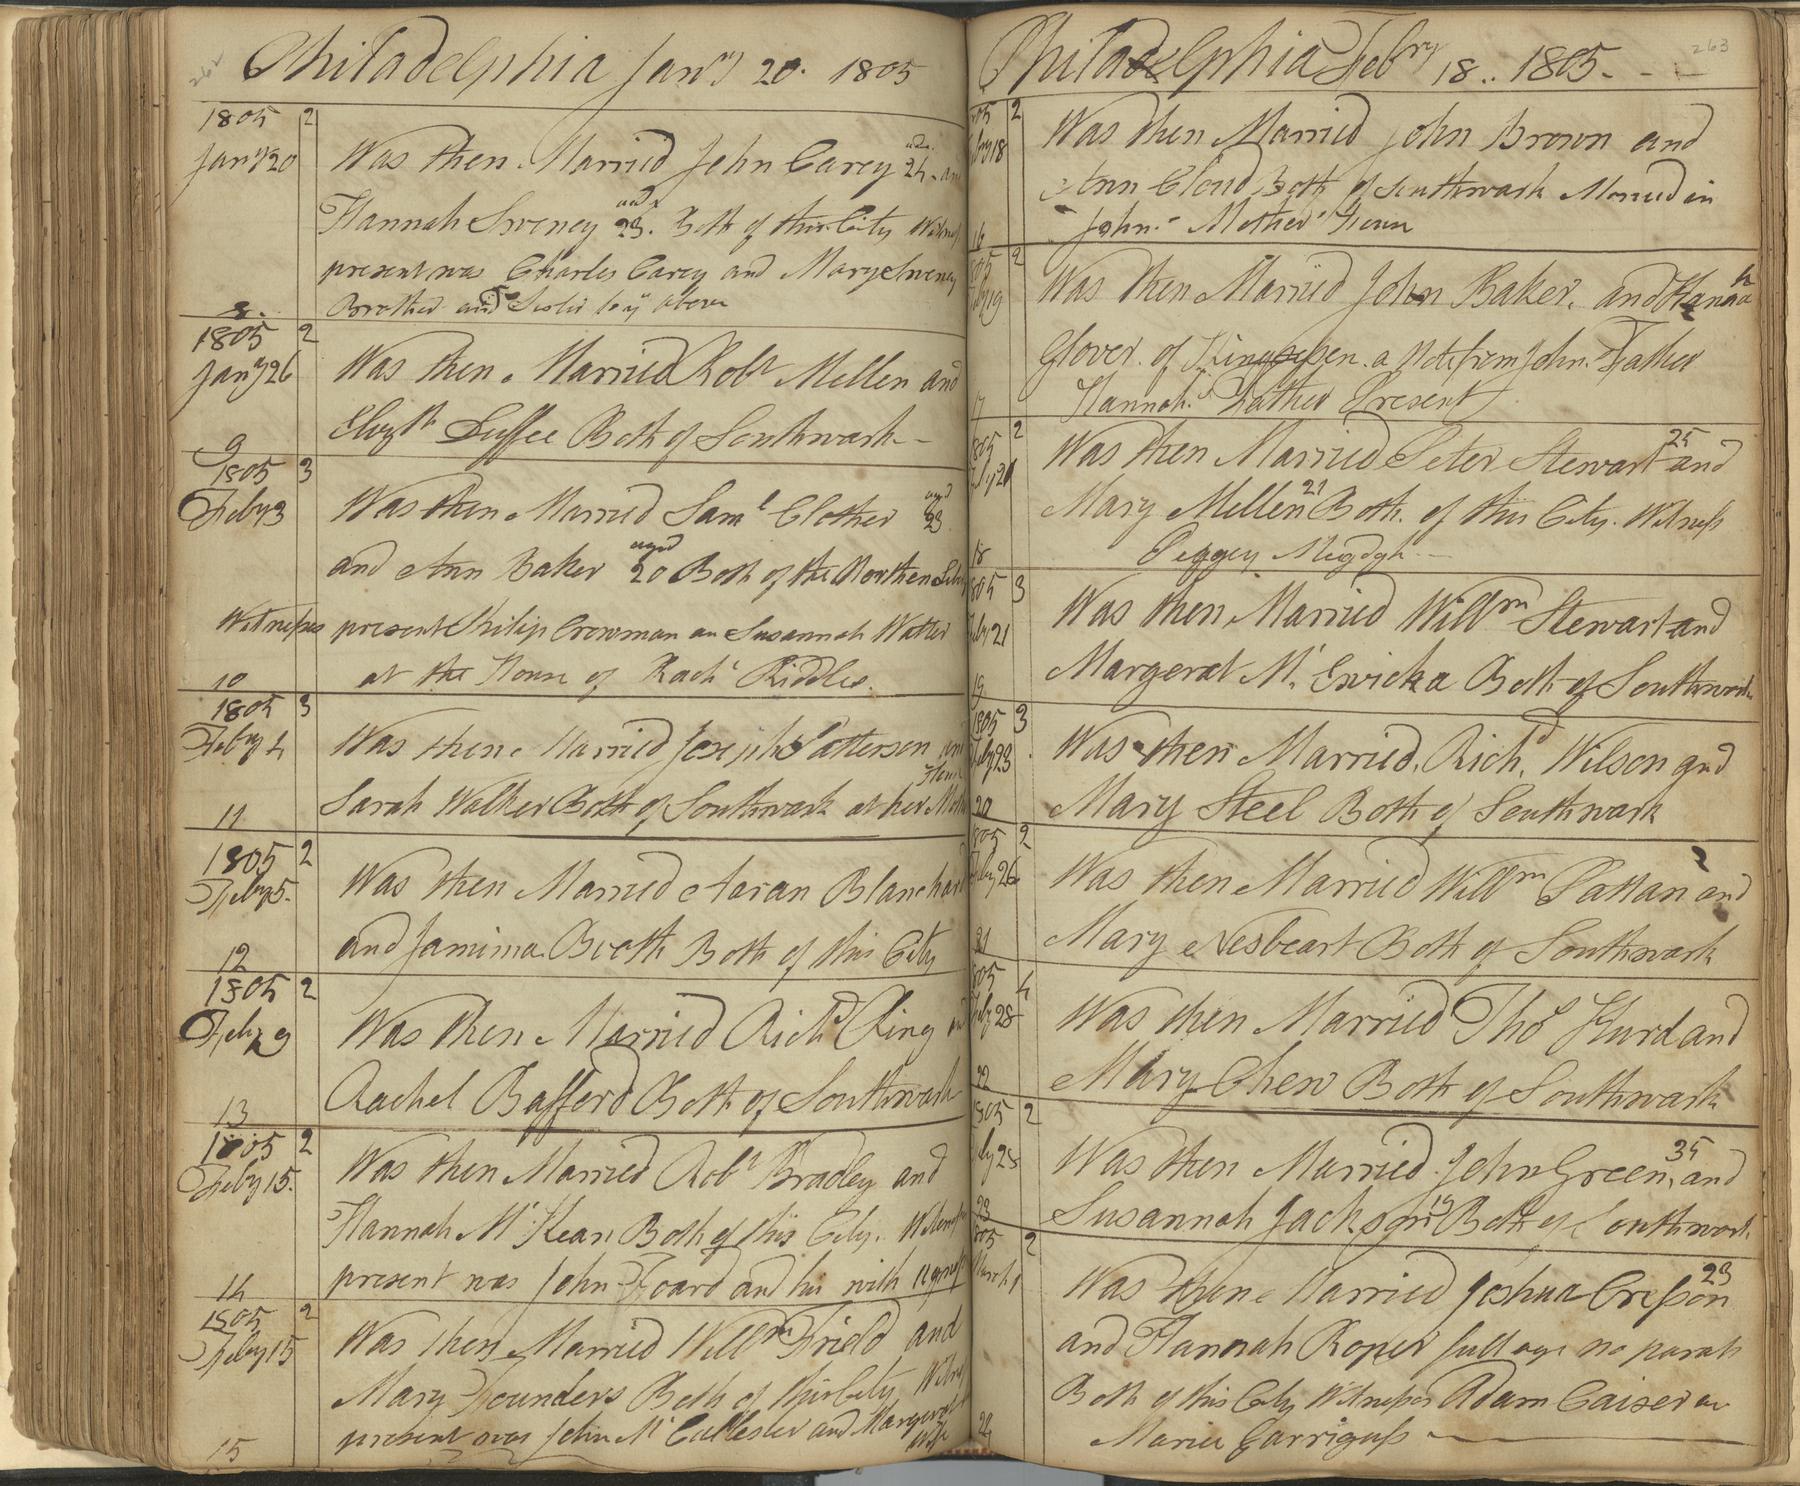 262
Philadelphia Jany 20. 1805
1805 2
Jany 20 Was then Married John Carey aged 24. and
Hannah Sweney aged 23. Both of this City Witness
present was Charles Carey and Mary Sweney
8. Brother and Sister to ye above
1805 2
Jany 26 Was then Married Robt Mellen and
9 Elizth Duffee Both of Southwark
1805 3
Feby 3 Was then Married Saml Clother aged 23
and Ann Baker aged 20 Both of the Northen
Witnesses present Philip Crowman an Susannah Walter
10 at the House of Rachl Riddles.
1805 3
Feby 4 Was then Married Joseph Patterson and
House
11 Sarah Walker Both of Southwark at her
1805 2
Feby 5. Was then Married Aaran Blanchard
12 and Jamima Booth Both of this City
1805 2
Feby 9 Was then Married Richd Ring and
13 Rachel Bafferd Both of Southwark
1805 2
Feby 15. Was then Married Robt Bradley and
Hannah Mc Kean Both of this City. Witness
14 present was John Foard and his with
1805 2
Feby 15 Was then Married Willm Field and
Mary Founders Both of this City
15 present was John Mc Callester and Margeret
wife
263
Philadelphia Febry 18.. 1805.
1805 2
Feby 18 Was then Married John Brown and
Ann Cloud Both of Southwark Married in
16 John's Mother's House
1805 2
Feby 19 Was then Married John Baker. and Hannah
Glover. of a Note from John's Father
17 Hannah's Father Present
1805 2
Feby 20 Was then Married Peter Stewart 25 and
Mary Mellen 21 Both. of this City. Witness
18 Peggey
1805 3
Feby 21 Was then Married Willm Stewart and
19 Margerat Mc Both of Southwark
1805 3
Feby 23 Was then Married. Richd. Wilson and
20 Mary Steel Both of Southwark
1805 2
Feby 26 Was then Married Willm Pattan and
21 Mary Nesbeart Both of Southwark
1805 4
Feby 28 Was then Married Thos Hurd and
22 Mary Chew Both of Southwark
1805 2
Feby 28 Was then Married. John Green 35 and
23 Susannah Jackson 19 Both of Southwark
1805 2
March 1 Was then Married Joshua Cresson 23
and Hannah Roper full age no parents
Both of this City Witnesses Adam Caiser an
24 Maria Garriguss